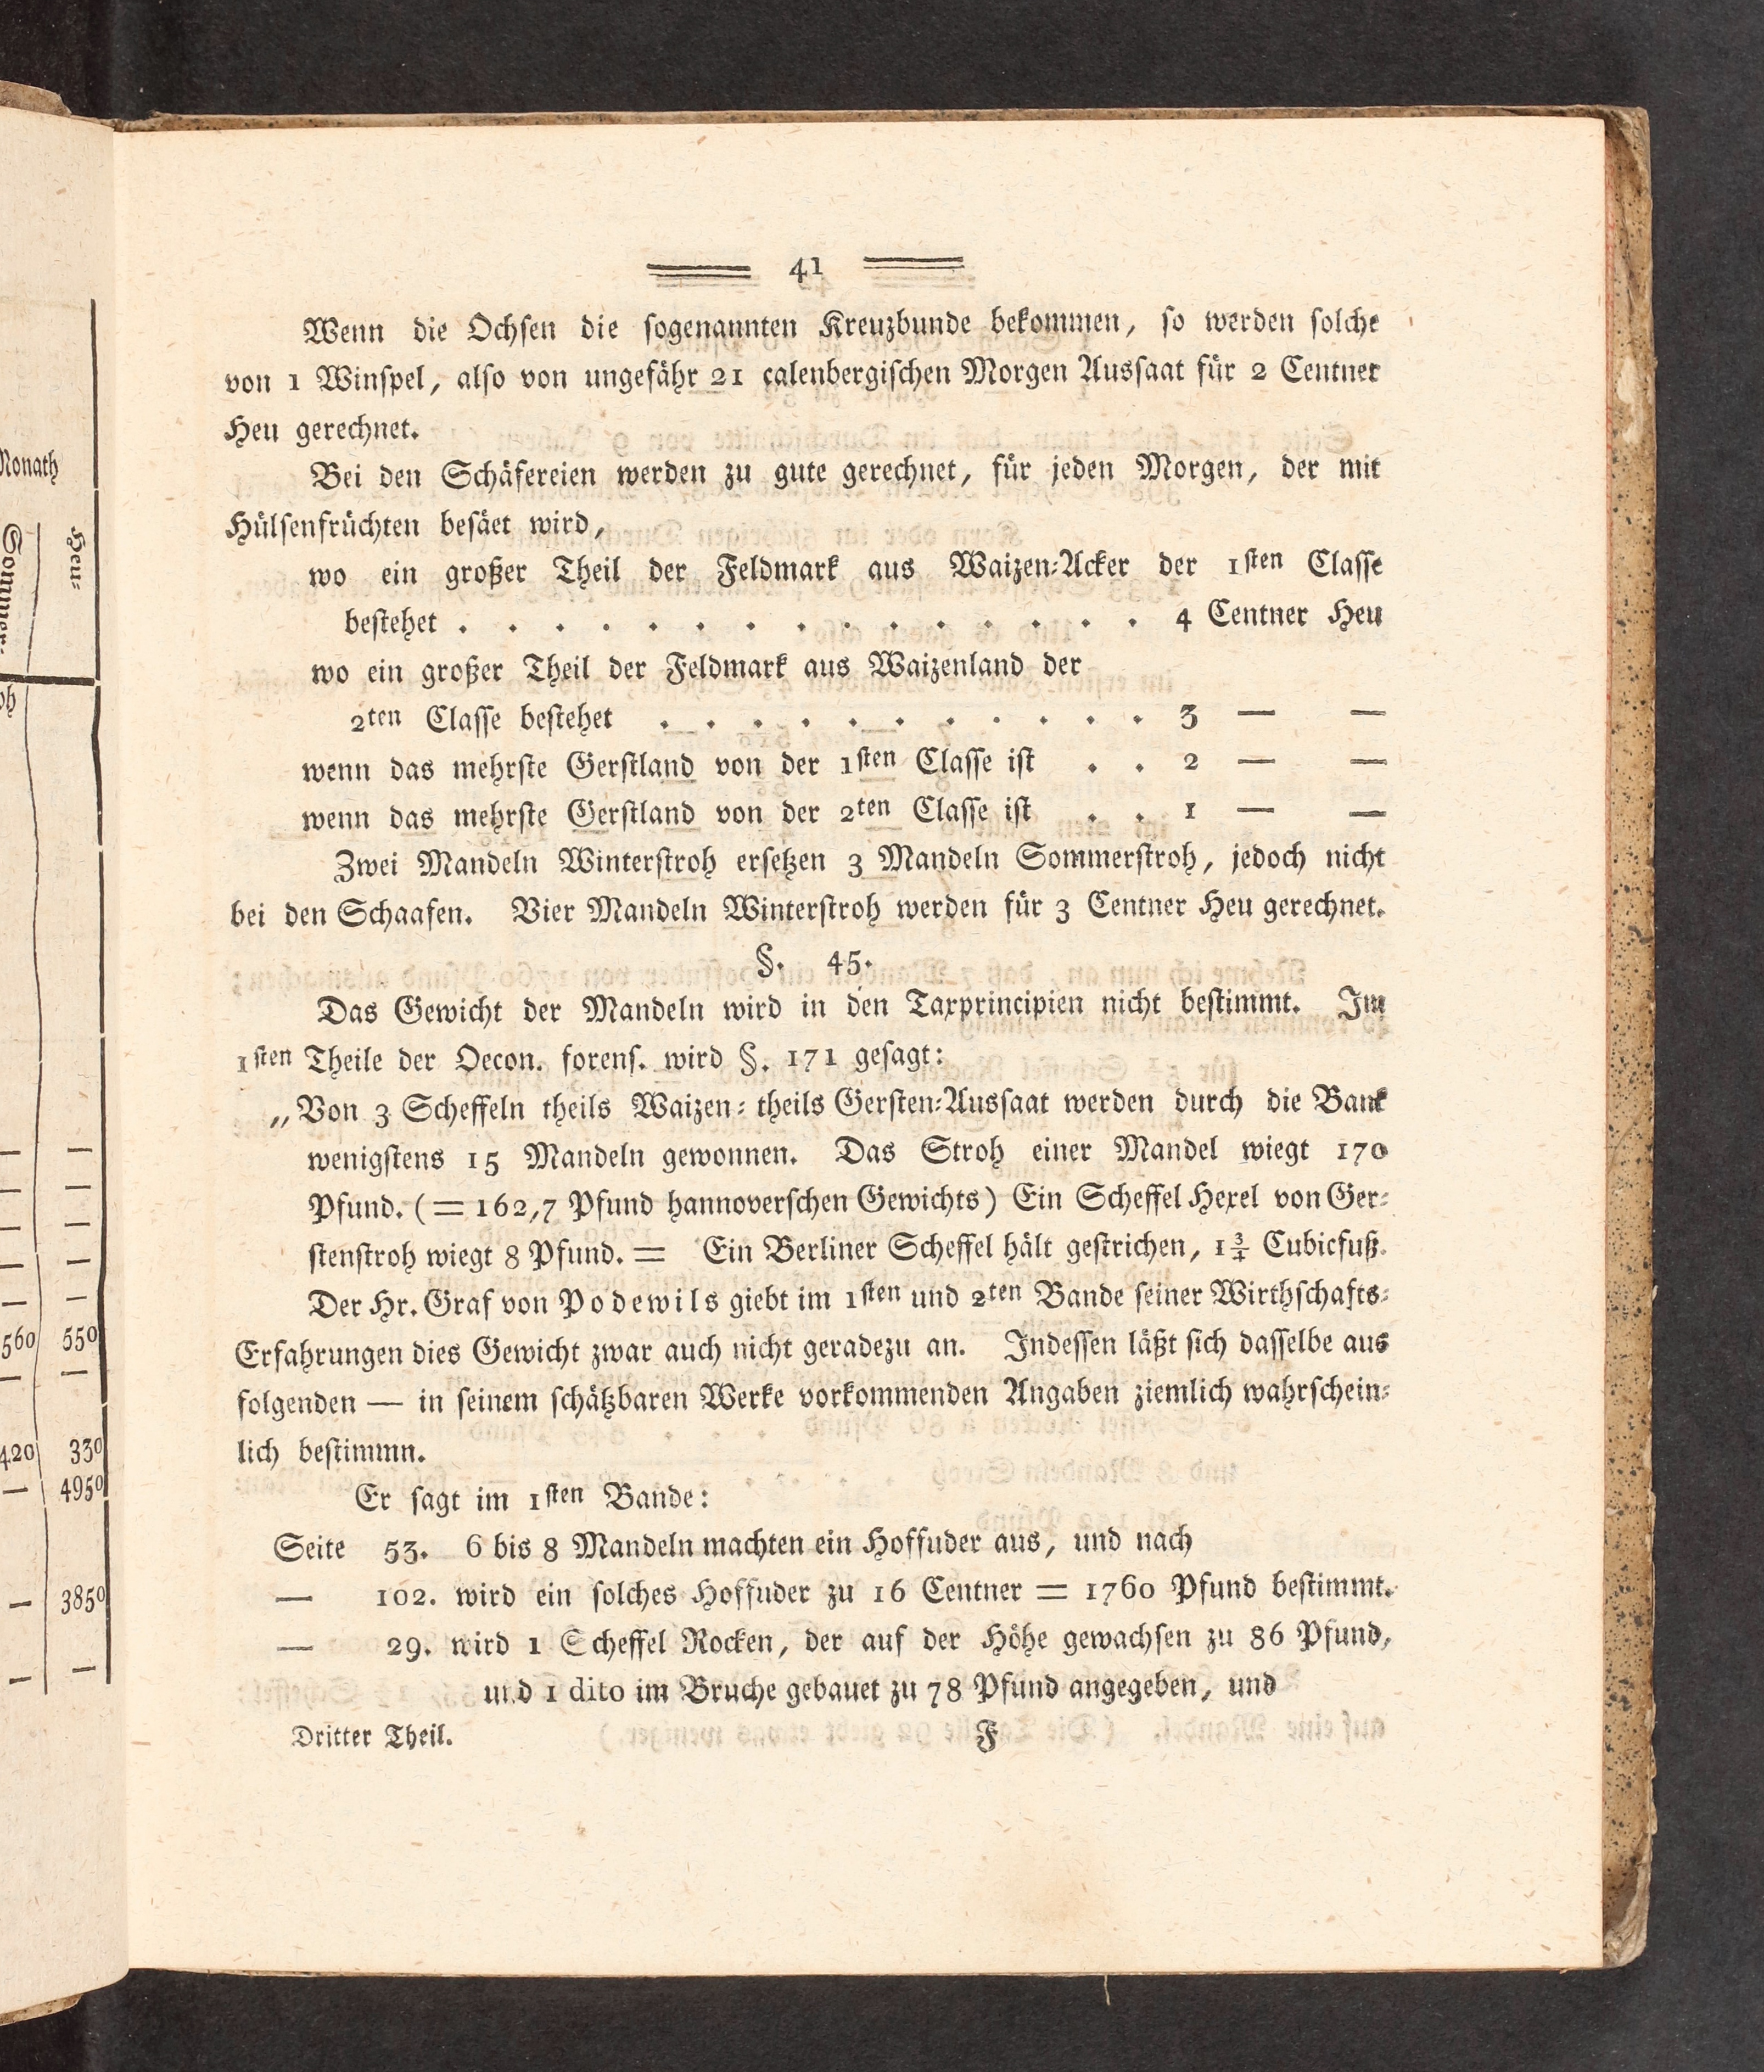 41
Wenn die Ochsen die sogenannten Kreuzbunde bekommen, so werden solche
von 1 Winspel, also von ungefähr 21 calenbergischen Morgen Aussaat für 2 Centner
Heu gerechnet.
Bei den Schäfereien werden zu gute gerechnet, für jeden Morgen, der mit
Hülsenfrüchten besäet wird,
wo ein großer Theil der Feldmark aus Waizen-Acker der 1sten Classe
bestehet . . . . . . . . . . . . . . . 4 Centner Heu
wo ein großer Theil der Feldmark aus Waizenland der
2ten Classe bestehet . . . . . . . . . . . 3 — —
wenn das mehrste Gerstland von der 1sten Classe ist . . 2 — —
wenn das mehrste Gerstland von der 2ten Classe ist . . 1 — —
Zwei Mandeln Winterstroh ersetzen 3 Mandeln Sommerstroh, jedoch nicht
bei den Schaafen. Vier Mandeln Winterstroh werden für 3 Centner Heu gerechnet.
§. 45.
Das Gewicht der Mandeln wird in den Taxprincipien nicht bestimmt. Im
1sten Theile der Oecon. forens. wird §. 171 gesagt:
„Von 3 Scheffeln theils Waizen- theils Gersten-Aussaat werden durch die Bank
wenigstens 15 Mandeln gewonnen. Das Stroh einer Mandel wiegt 170
Pfund. (= 162,7 Pfund hannoverschen Gewichts) Ein Scheffel Hexel von Ger-
stenstroh wiegt 8 Pfund. = Ein Berliner Scheffel hält gestrichen, 1¾ Cubicfuß.
Der Hr. Graf von Podewils giebt im 1sten und 2ten Bande seiner Wirthschafts-
Erfahrungen dies Gewicht zwar auch nicht geradezu an. Indessen läßt sich dasselbe aus
folgenden — in seinem schätzbaren Werke vorkommenden Angaben ziemlich wahrschein-
lich bestimmn.
Er sagt im 1sten Bande:
Seite 53. 6 bis 8 Mandeln machten ein Hoffuder aus, und nach
— 102. wird ein solches Hoffuder zu 16 Centner = 1760 Pfund bestimmt.
— 29. wird 1 Scheffel Rocken, der auf der Höhe gewachsen zu 86 Pfund,
und 1 dito im Bruche gebauet zu 78 Pfund angegeben, und
Dritter Theil. F
Monath
Heu-
560 550
420 330
— 4950
— 3850